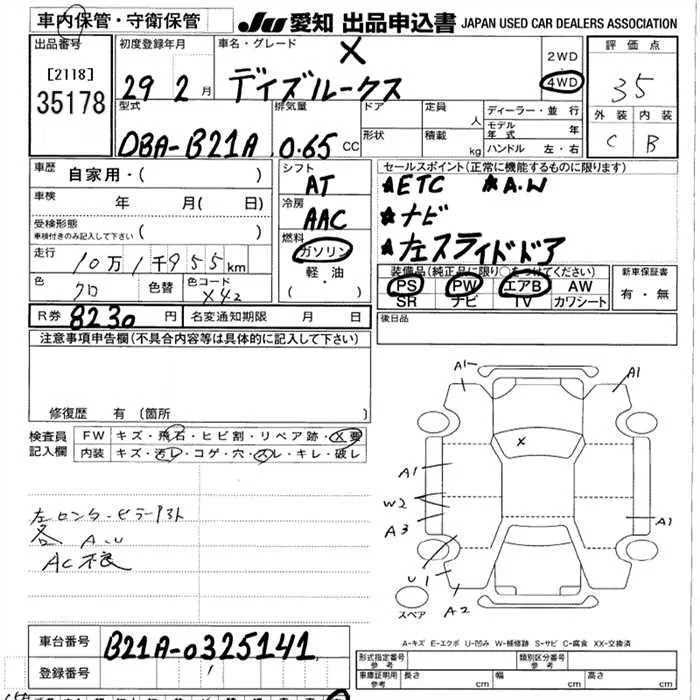 車内保管・守衛保管
JU 愛知 出品申込書 JAPAN USED CAR DEALERS ASSOCIATION
出品番号
[2118]
35178
初度登録年月
29 2 月
車名・グレード
X
デイズルークス
2WD
4WD
評価点
35
外装 内装
C B
型式
DBA-B21A
排気量
0.65 CC
ドア
形状
定員
人
積載
kg
ディーラー・並行
モデル年式 年
ハンドル 左・右
車歴 自家用・( )
車検 年 月( 日)
受検形態
車検付きのみ記入して下さい ( )
走行 10万1千955km
色 クロ 色替 色コード X42
シフト
AT
冷房
AAC
燃料
ガソリン
軽・油
( ・ )
セールスポイント(正常に機能するものに限ります)
★ETC ★A.W
★ナビ
★左スライドドア
装備品(純正品に限り○をつけてください)
PS PW エアB AW
SR ナビ TV カワシート
新車保証書
有・無
R券 8230 円 名変通知期限 月 日
後日品
注意事項申告欄(不具合内容等は具体的に記入して下さい)
修復歴 有(箇所 )
検査員記入欄
FW キズ・飛石・ヒビ割・リペア跡・X要
内装 キズ・汚レ・コゲ・穴・スレ・キレ・破レ
各 A.U
AC不良
A1
A1
X
A1
W2
A3
A1
U1
A2
スペア
A-キズ E-エクボ U-凹み W-補修跡 S-サビ C-腐食 XX-交換済
車台番号 B21A-0325141
登録番号
形式指定番号 参考
類別区分番号 参考
車庫証明用 参考 長さ cm 幅 cm 高さ cm